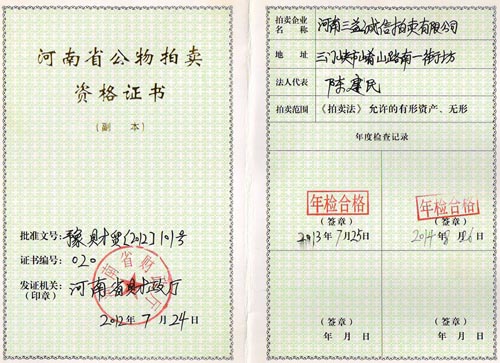 河南省公物拍卖
资格证书
(副本)
批准文号: 豫财贸[2012]101号
证书编号: 020
发证机关: 河南省财政厅
(印章)
2012年7月24日
河南省财政厅
拍卖企业名称 河南三益诚信拍卖有限公司
地址 三门峡市崤山路南一街坊
法人代表 陈建民
拍卖范围 《拍卖法》允许的有形资产、无形
年度检查记录
年检合格
(签章)
2013年7月25日
年检合格
(签章)
2014 26
(签章)
年 月 日
(签章)
年 月 日